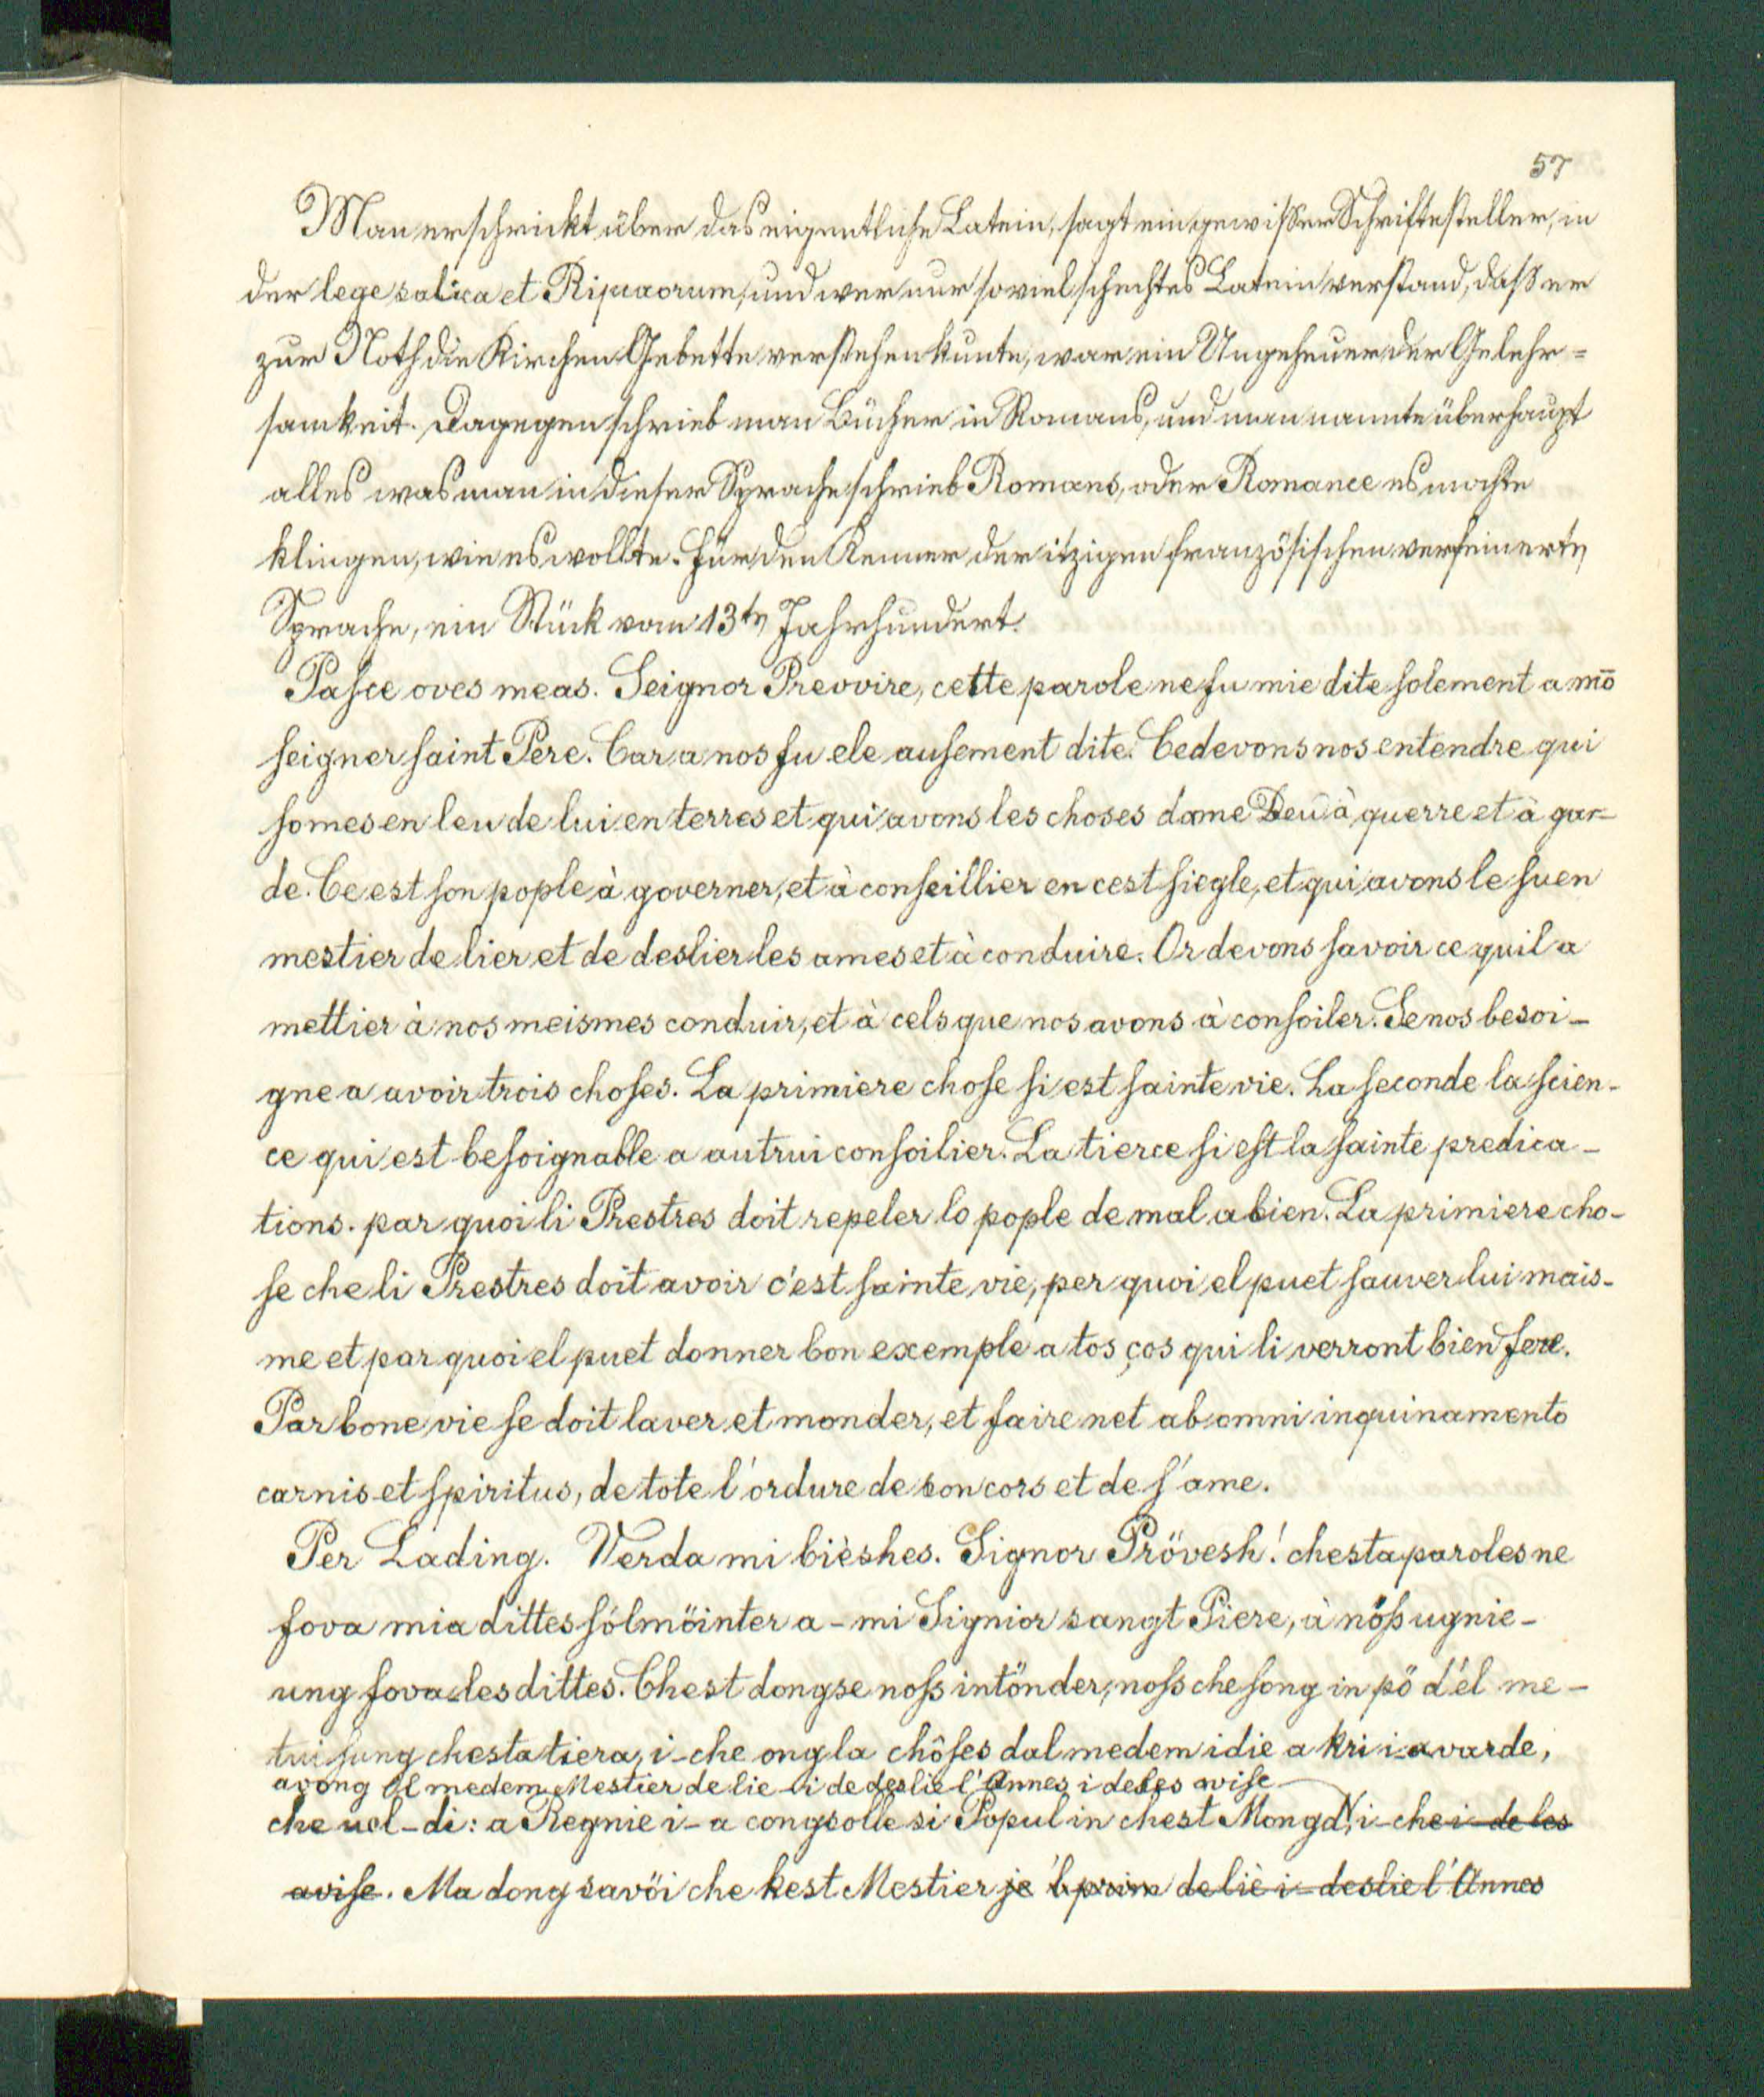 57
Man erschrickt über das eigentliche Latein, sagt ein gewißer Schriftesteller, in
der lege salica et Ripuaorum, und wer nur soviel schechtes Latein verstand, daß er
zur Noth die Kirchen Gebette verstehen kunte, war ein Ungeheuer der Gelehr=
samkeit. Dagegen schrieb man Bücher in Romans, und man nannte überhaupt
alles was man in dieser Sprache schrieb Romans, oder Romance es mochte
klingen, wie es wollte. Für den Kenner der itzigen französischen verfeinerten
Sprache, ein Stück vom 13ten Jahrhundert.
Pasce oves meas. Seignor Prevvire, cette parole ne fu mie dite solement a mō
seigner saint Pere. Car a nos fu ele ausement dite. Ce devons nos entendre qui
somes en leu de lui en terres et qui avons les choses dame Deu à querre et à gar-
de. Ce est son pople à governer, et à conseillier en cest siegle, et qui avons le suen
mestier de lier et de deslier les ames et à conduire. Or devons savoir ce quil a
mettier à nos meismes conduir, et à cels que nos avons à consoiler. Se nos besoi-
gne a avoir trois choses. La primiere chose si est sainte vie. La seconde la scien-
ce qui est besoignable a autrui consoilier. La tierce si est la sainte predica-
tions. par quoi li Prestres doit repeler lo pople de mal a bien. La primiere cho-
se che li Prestres doit avoir c'est sainte vie, per quoi el puet sauver lui mais-
me et par quoi el puet donner bon exemple a tos ços qui li verront bien fere.
Par bone vie se doit laver et monder, et faire net ab omni inquinamento
carnis et spiritus, de tote l'ordure de son cors et de s'ame.
Per Lading. Verda mi bièshes. Signor Prövesh! chesta paroles ne
fova mia dittes sólmöinter a-mi Signior sangt Piere, à nöss ugnie-
ung fova les dittes. Chest dongse noss intönder, noss che song in pö d'él me-
tui sung chesta tiera, i-che ong la chôses dal medem idie a kri i-a varde,
avong Ol medem Mestier de lie-i de deslie l'Annes i de les avise
che uol-di: a Regnie i-a congsolle si Popul in chest Mongd, i-che i-de les
avise. Ma dong savöi che kest Mestier je 'l prim de liè i-deslie l'Annes